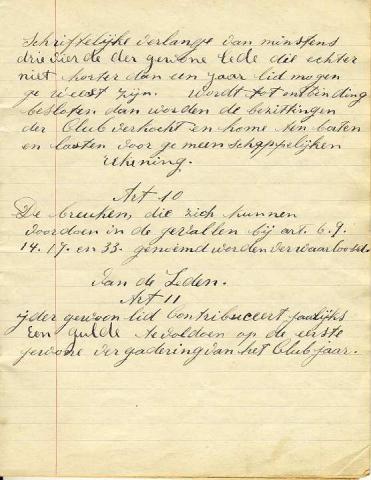 Schriftelijke verlange van minstens
drie vierde der gewone Lede die echter
niet korter dan een jaar lid mogen
ge weest zijn. Wordt tot ontbinding
besloten dan worden de bezittingen
der Club verkocht en kome ten baten
en lasten voor ge meen schappelijken
rekening.
Art 10
De breuken, die zich kunnen
voordoen in de gevallen bij art. 6. 9.
14. 17. en 33. genoemd worden verwaarloosd.
Van de Leden.
Art 11
yder gewoon lid Contribueert jaarlijks
Een gulde te voldoen op de eerste
gewone vergadering van het Club jaar.